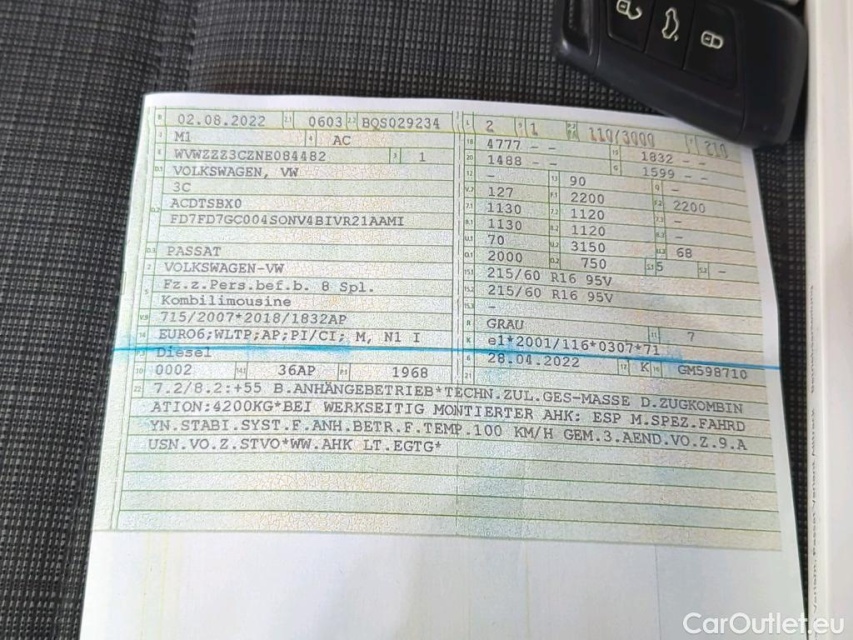 02.08.2022 0603 BQS029234 2 1 110/3000 210
M1 AC 4777 - - 1832 - -
WVWZZZ3CZNE084482 1 1488 - - 1599 - -
VOLKSWAGEN, VW - 90 -
3C 127 2200 2200
ACDTSBX0 1130 1120 -
FD7FD7GC004SONV4BIVR21AAMI 1130 1120 -
70 3150 68
PASSAT 2000 750 5 -
VOLKSWAGEN-VW 215/60 R16 95V
Fz.z.Pers.bef.b. 8 Spl. 215/60 R16 95V
Kombilimousine -
715/2007*2018/1832AP GRAU 7
EURO6;WLTP;AP;PI/CI; M, N1 I e1*2001/116*0307*71
Diesel 28.04.2022 K GM598710
0002 36AP 1968
7.2/8.2:+55 B.ANHÄNGEBETRIEB*TECHN.ZUL.GES-MASSE D.ZUGKOMBIN
ATION:4200KG*BEI WERKSEITIG MONTIERTER AHK: ESP M.SPEZ.FAHRD
YN.STABI.SYST.F.ANH.BETR.F.TEMP.100 KM/H GEM.3.AEND.VO.Z.9.A
USN.VO.Z.STVO*WW.AHK LT.EGTG*
CarOutlet.eu